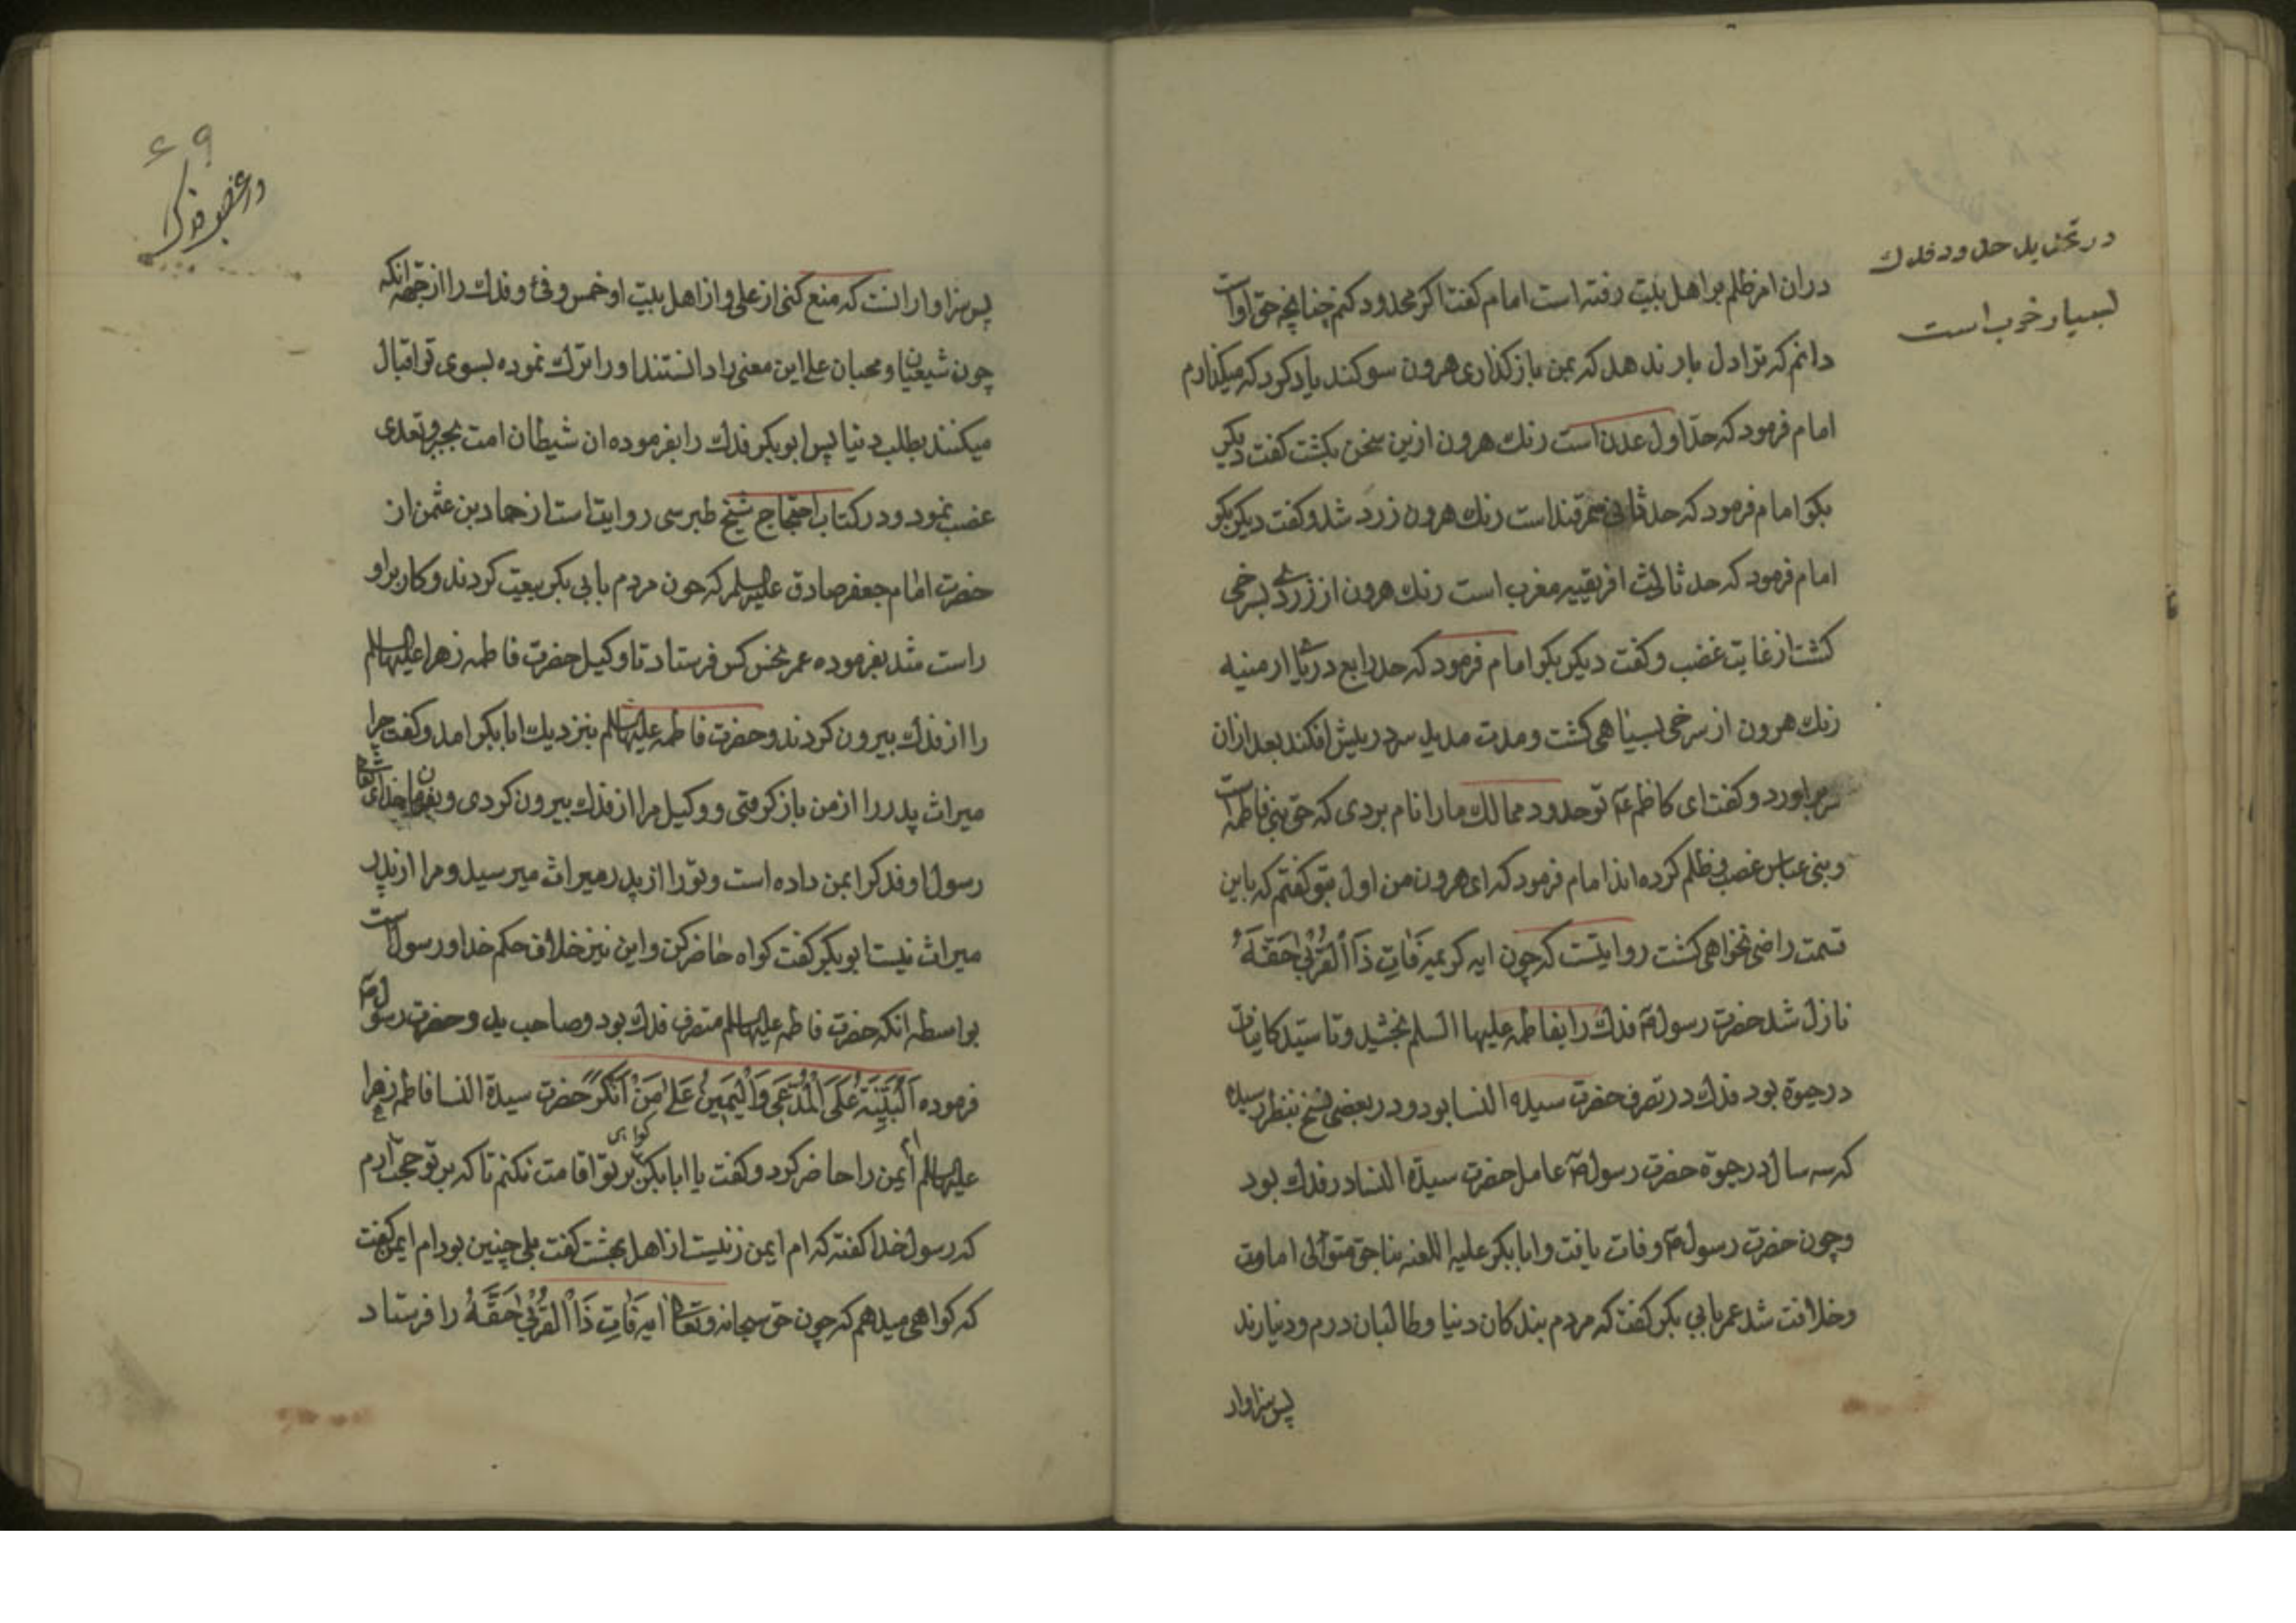 در تحدید حدود فدك
بسیار خوب است
دران امر ظلم بر اهل بیت رفته است امام کفت اکر محدود کنم چنانچه حق اوست
دانم که ترا دل بار ندهد که بمن بازکذاری هرون سوکند یاد کرد که میکذارم
امام فرمود که حدّ اول عدن است رنك هرون ازین سخن بکشت کفت دیکر
بکو امام فرمود که حد ثانی سمرقند است رنك هرون زرد شد و کفت دیکر بکو
امام فرمود که حد ثالث افریقیه مغرب است رنك هرون از زردی بسرخی
کشت از غایت غضب و کفت دیکر بکو امام فرمود که حد رابع دریای ارمنیه
رنك هرون از سرخی بسیاهی کشت و مدت مدید سر در پیش افکند بعد ازان
سر براورد و کفت ای کاظم تو حدود ممالك ما را نام بردی که حق بنی فاطمه است
و بنی عباس غصب و ظلم کرده اند امام فرمود که ای هرون من اول بتو کفتم که باین
قسمت راضی نخواهی کشت روایتست که چون ایه کریمه فَاتِ ذَا الْقُرْبیٰ حَقَّهُ
نازل شد حضرت رسول فدك را بفاطمه علیها السلم بخشید و تا سید کاینات
در حیوة بود فدك در تصرف حضرت سیده النسا بود و در بعضی نسخ بنظر رسیده
که سه سال در حیوة حضرت رسول عامل حضرت سیدة النسا در فدك بود
و چون حضرت رسول وفات یافت و ابابکر علیه اللعنه بناحق متوالی امامت
و خلافت شد عمر بابی بکر کفت که مردم بندکان دنیا و طالبان درم و دینارند
پس سزاوار
۶۹
در غصب فدک
پس سزاوار انست که منع کنی از علی و از اهل بیت او خمس و فئ و فدك را از جهة انکه
چون شیعیان و محبان علی این معنی را دانستند او را ترك نموده بسوی تو اقبال
میکنند بطلب دنیا پس ابوبکر فدك را بفرموده ان شیطان امت بجبر و تعدی
غصب نمود و در کتاب احتجاج شیخ طبرسی روایت است از حماد بن عثمن از
حضرت امام جعفر صادق علیه السلم که چون مردم بابی بکر بیعت کردند و کار بر او
راست شد بفرموده عمر کس فرستاد تا وکیل حضرت فاطمه زهرا علیها السلم
را از فدك بیرون کردند و حضرت فاطمه علیها السلم بنزدیك ابابکر امد و کفت چرا
میراث پدر را از من باز کرفتی و وکیل مرا از فدك بیرون کردی و بفرمان خدای تعالی
رسول او فدك را بمن داده است و تو را از پدر میراث میرسید و مرا از پدر
میراث نیست ابوبکر کفت کواه حاضر کن و این نیز خلاف حکم خدا و رسول است
بواسطه انکه حضرت فاطمه علیها السلم متصرف فدك بود و صاحب ید و حضرت رسول
فرموده اَلْبَیِّنَةُ عَلَی الْمُدَّعِی وَالْیَمِینُ عَلیٰ مَنْ اَنْکَرَ حضرت سیدة النسا فاطمه زهرا
علیها السلم ام ایمن را حاضر کرد و کفت یا ابابکر کواهی بر تو اقامت نکنم تا که بر تو حجت ارم
که رسول خدا کفته که ام ایمن زنیست از اهل بهشت کفت بلی چنین بود ام ایمن کفت
که کواهی میدهم که چون حق سبحانه و تعالی ایه فَاتِ ذَا الْقُرْبیٰ حَقَّهُ را فرستاد